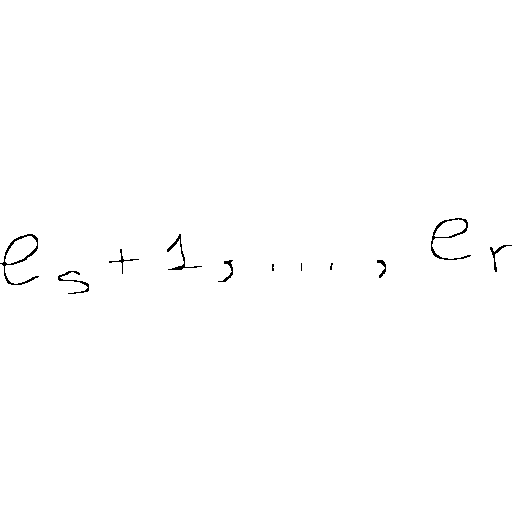 e_s+1, ..., e_r